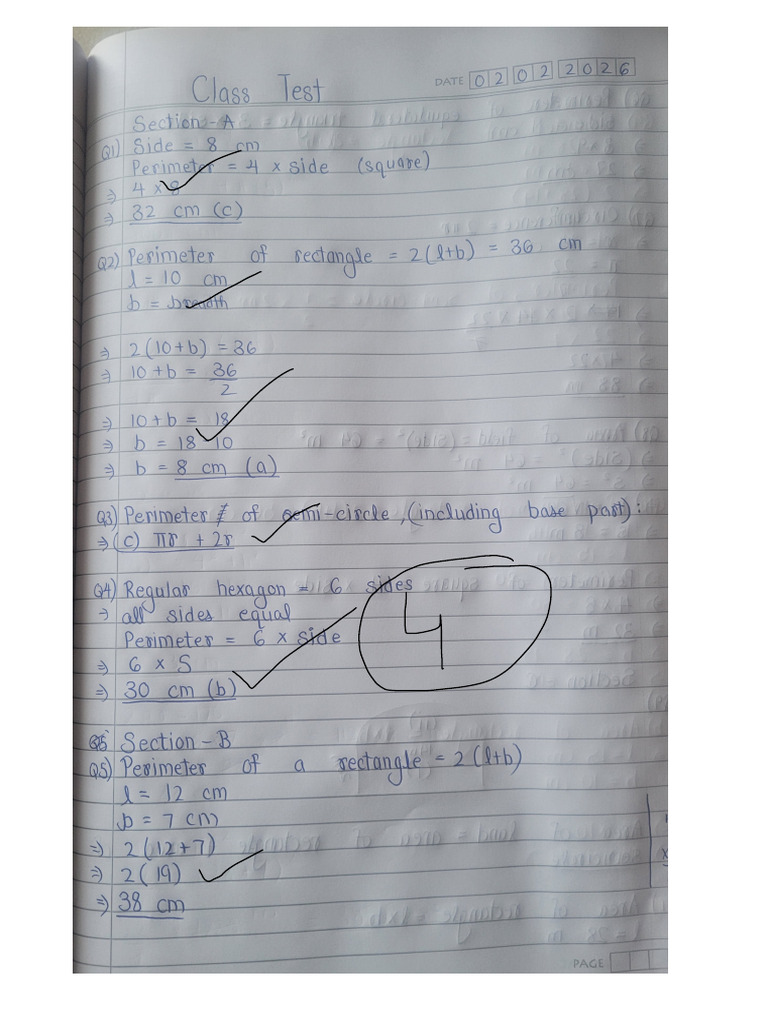 Class Test
DATE 02 02 2026
Section - A
Q1) Side = 8 cm
Perimeter = 4 × side (square)
⇒ 4 × 8
⇒ 32 cm (c)
Q2) Perimeter of rectangle = 2(l+b) = 36 cm
l = 10 cm
b = breadth
⇒ 2(10+b) = 36
⇒ 10+b = 36/2
⇒ 10+b = 18
⇒ b = 18 - 10
⇒ b = 8 cm (a)
Q3) Perimeter of semi-circle, (including base part):
⇒ (c) πr + 2r
Q4) Regular hexagon = 6 sides
⇒ all sides equal
Perimeter = 6 × side
⇒ 6 × 5
⇒ 30 cm (b)
4
Section - B
Q5) Perimeter of a rectangle = 2(l+b)
l = 12 cm
b = 7 cm
⇒ 2(12+7)
⇒ 2(19)
⇒ 38 cm
PAGE